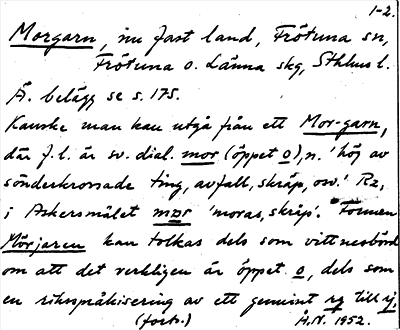 1-2.
Morgarn, nu fast land, Frötuna sn,
Frötuna o. Länna skg, Sthlms l.
Ä. belägg se s. 175.
Kanske man kan utgå från ett Mor-garn,
där f.l. är sv. dial. mor (öppet o), n. 'hög av
sönderkrossade ting, avfall, skräp, osv.' Rz,
i Askersmålet mor 'moras, skräp'. Formen
Mörjaren kan tolkas dels som vittnesbörd
om att det verkligen är öppet o, dels som
en riksspråkisering av ett genuint rg till rj.
(forts.) Å.N. 1952.